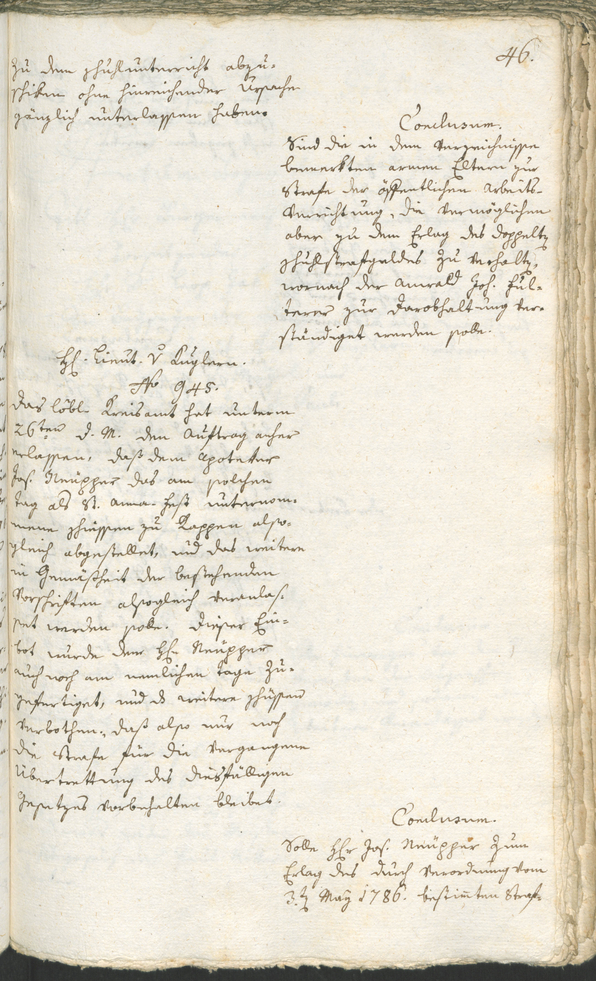 46.
zu dem Schulunterricht abzu-
schiken ohne hinreichender Ursache
gänzlich unterlassen haben.
Conclusum.
Sind die in dem Verzeichnisse
bemerkten armen Eltern zur
Strafe der öffentlichen Arbeits-
Verrichtung, die vermöglichen
aber zu dem Erlag des doppelten
Schulstrafgeldes zu verhalten,
wornach der Anwald Joh. Fül-
terer zur Darobhaltung ver-
ständiget werden solle.
H. Lieut. v Kuglern.
No 945.
Das löbl. Kreisamt hat unterm
26ten d. M. den Auftrag anher
erlassen, daß dem Apoteker
Jos. Neupper das am solchen
Tag als St. Anna-Fest unternom-
mene schiessen zu Kappen also-
gleich abgestellet, und das weitere
in Gemäßheit der bestehenden
Vorschriften alsogleich veranlas-
set werden solle. Dieser Ein-
bot wurde dem H. Neupper
auch noch am nemlichen Tage zu-
gefertiget, und das weitere schüssen
verbothen, daß also nur noch
die Strafe für die vergangene
Übertrettung des diesfälligen
Gesetzes vorbehalten bleibet.
Conclusum.
Solle Hr Jos. Neupper zum
Erlag des durch Verordnung vom
3.t May 1786. bestimten Straf-